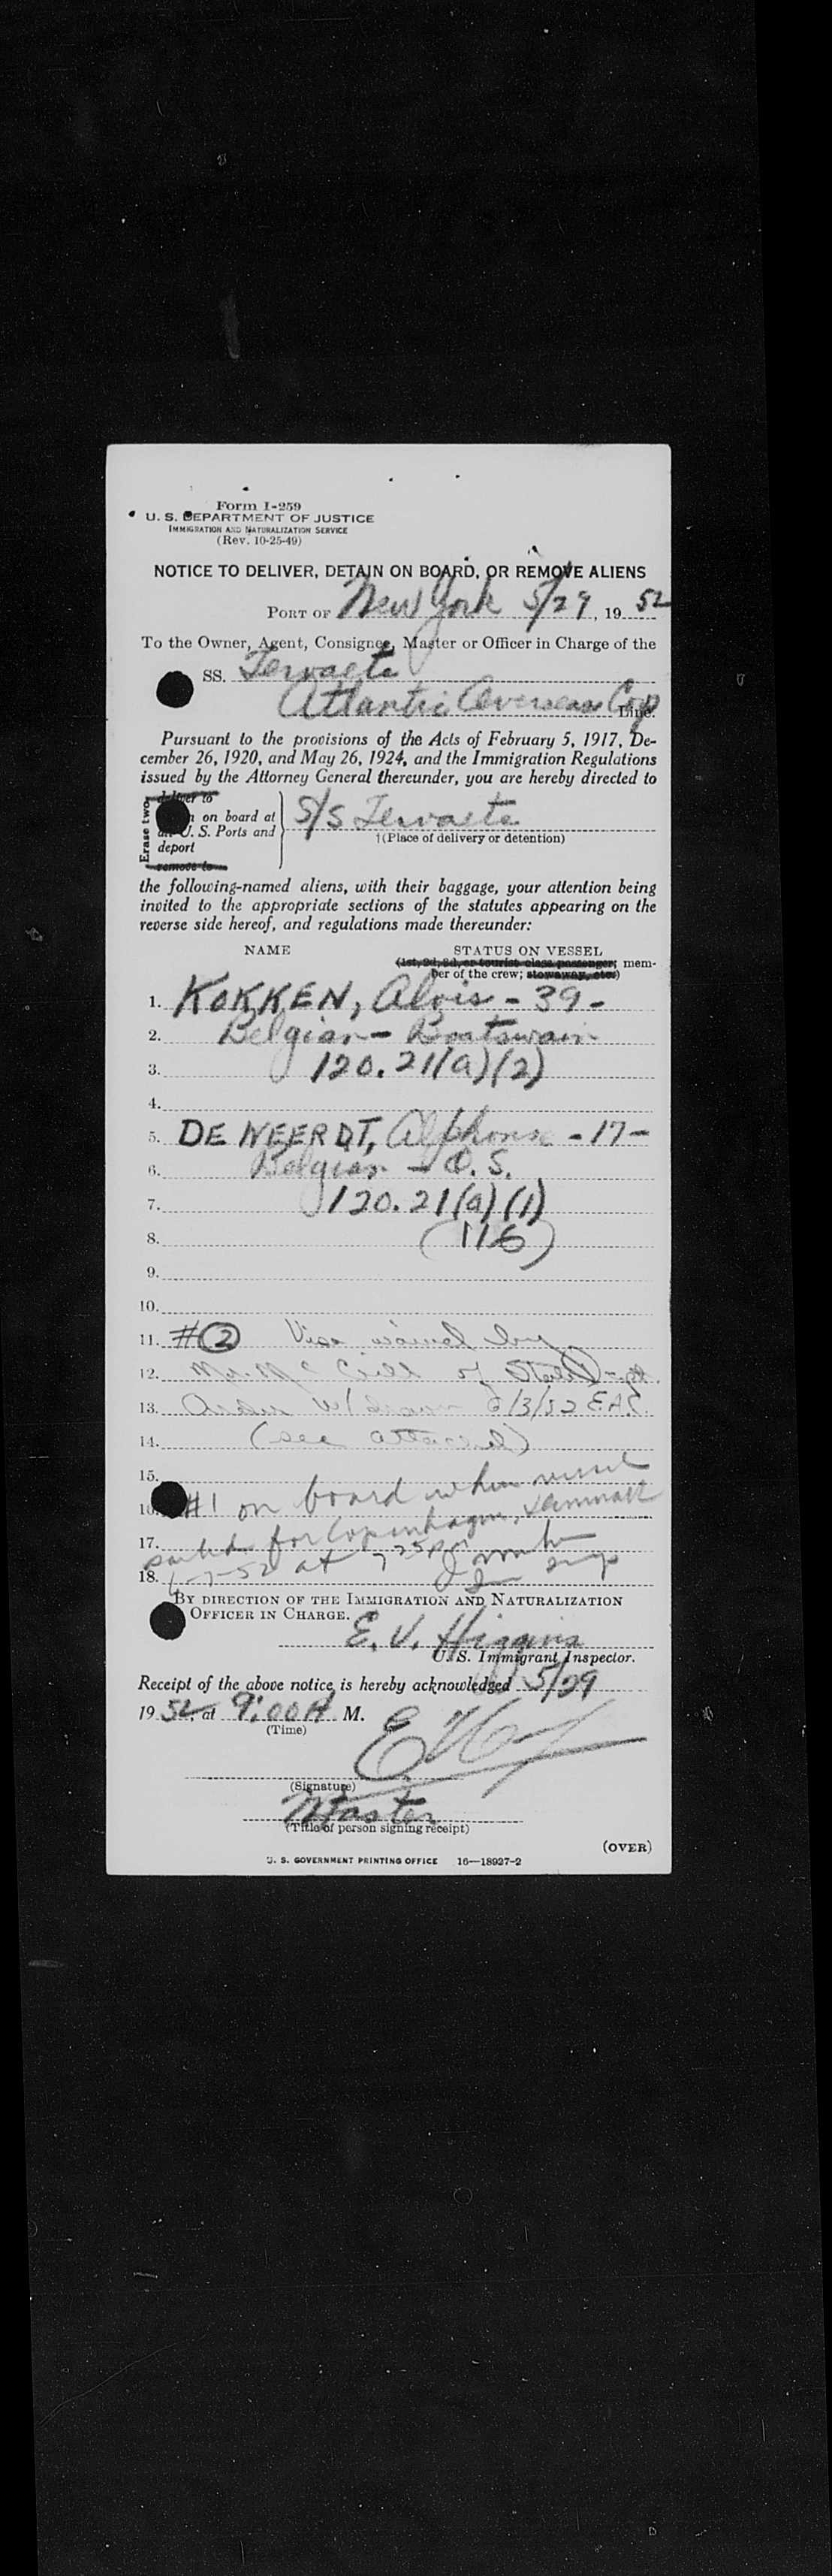 Form I-259
U. S. DEPARTMENT OF JUSTICE
IMMIGRATION AND NATURALIZATION SERVICE
(Rev. 10-25-49)
NOTICE TO DELIVER, DETAIN ON BOARD, OR REMOVE ALIENS
PORT OF New York 5/29, 19 52
To the Owner, Agent, Consignee, Master or Officer in Charge of the
SS. Tervaete
Atlantic Overseas Corp Line.
Pursuant to the provisions of the Acts of February 5, 1917, De-
cember 26, 1920, and May 26, 1924, and the Immigration Regulations
issued by the Attorney General thereunder, you are hereby directed to
Erase two
deliver to
on board at
U. S. Ports and
deport
remove to
S/S Tervaete
†(Place of delivery or detention)
the following-named aliens, with their baggage, your attention being
invited to the appropriate sections of the statutes appearing on the
reverse side hereof, and regulations made thereunder:
NAME STATUS ON VESSEL
(1st, 2d, 3d, or tourist class passenger; mem-
ber of the crew; stowaway, etc.)
1. KOKKEN, Alois - 39 -
2. Belgian - Boatswain
3. 120.21(a)(2)
4.
5. DE NEERDT, Alphons - 17 -
6. Belgian - O.S.
7. 120.21(a)(1)
8. (116)
9.
10.
11. #2 Visa waived by
12. Mr. Mc of State
13. 6/3/52 E.A.C.
14. (see attached)
15.
16. #1 on board when vessel
17. sailed for Copenhagen, Denmark
18. 6-7-52 at 7 25 pm
BY DIRECTION OF THE IMMIGRATION AND NATURALIZATION
OFFICER IN CHARGE.
E. V. Higgins
U. S. Immigrant Inspector.
Receipt of the above notice is hereby acknowledged 5/29
19 52, at 9:00 A M.
(Time)
(Signature)
Master
(Title of person signing receipt)
(OVER)
U. S. GOVERNMENT PRINTING OFFICE 16—18927-2